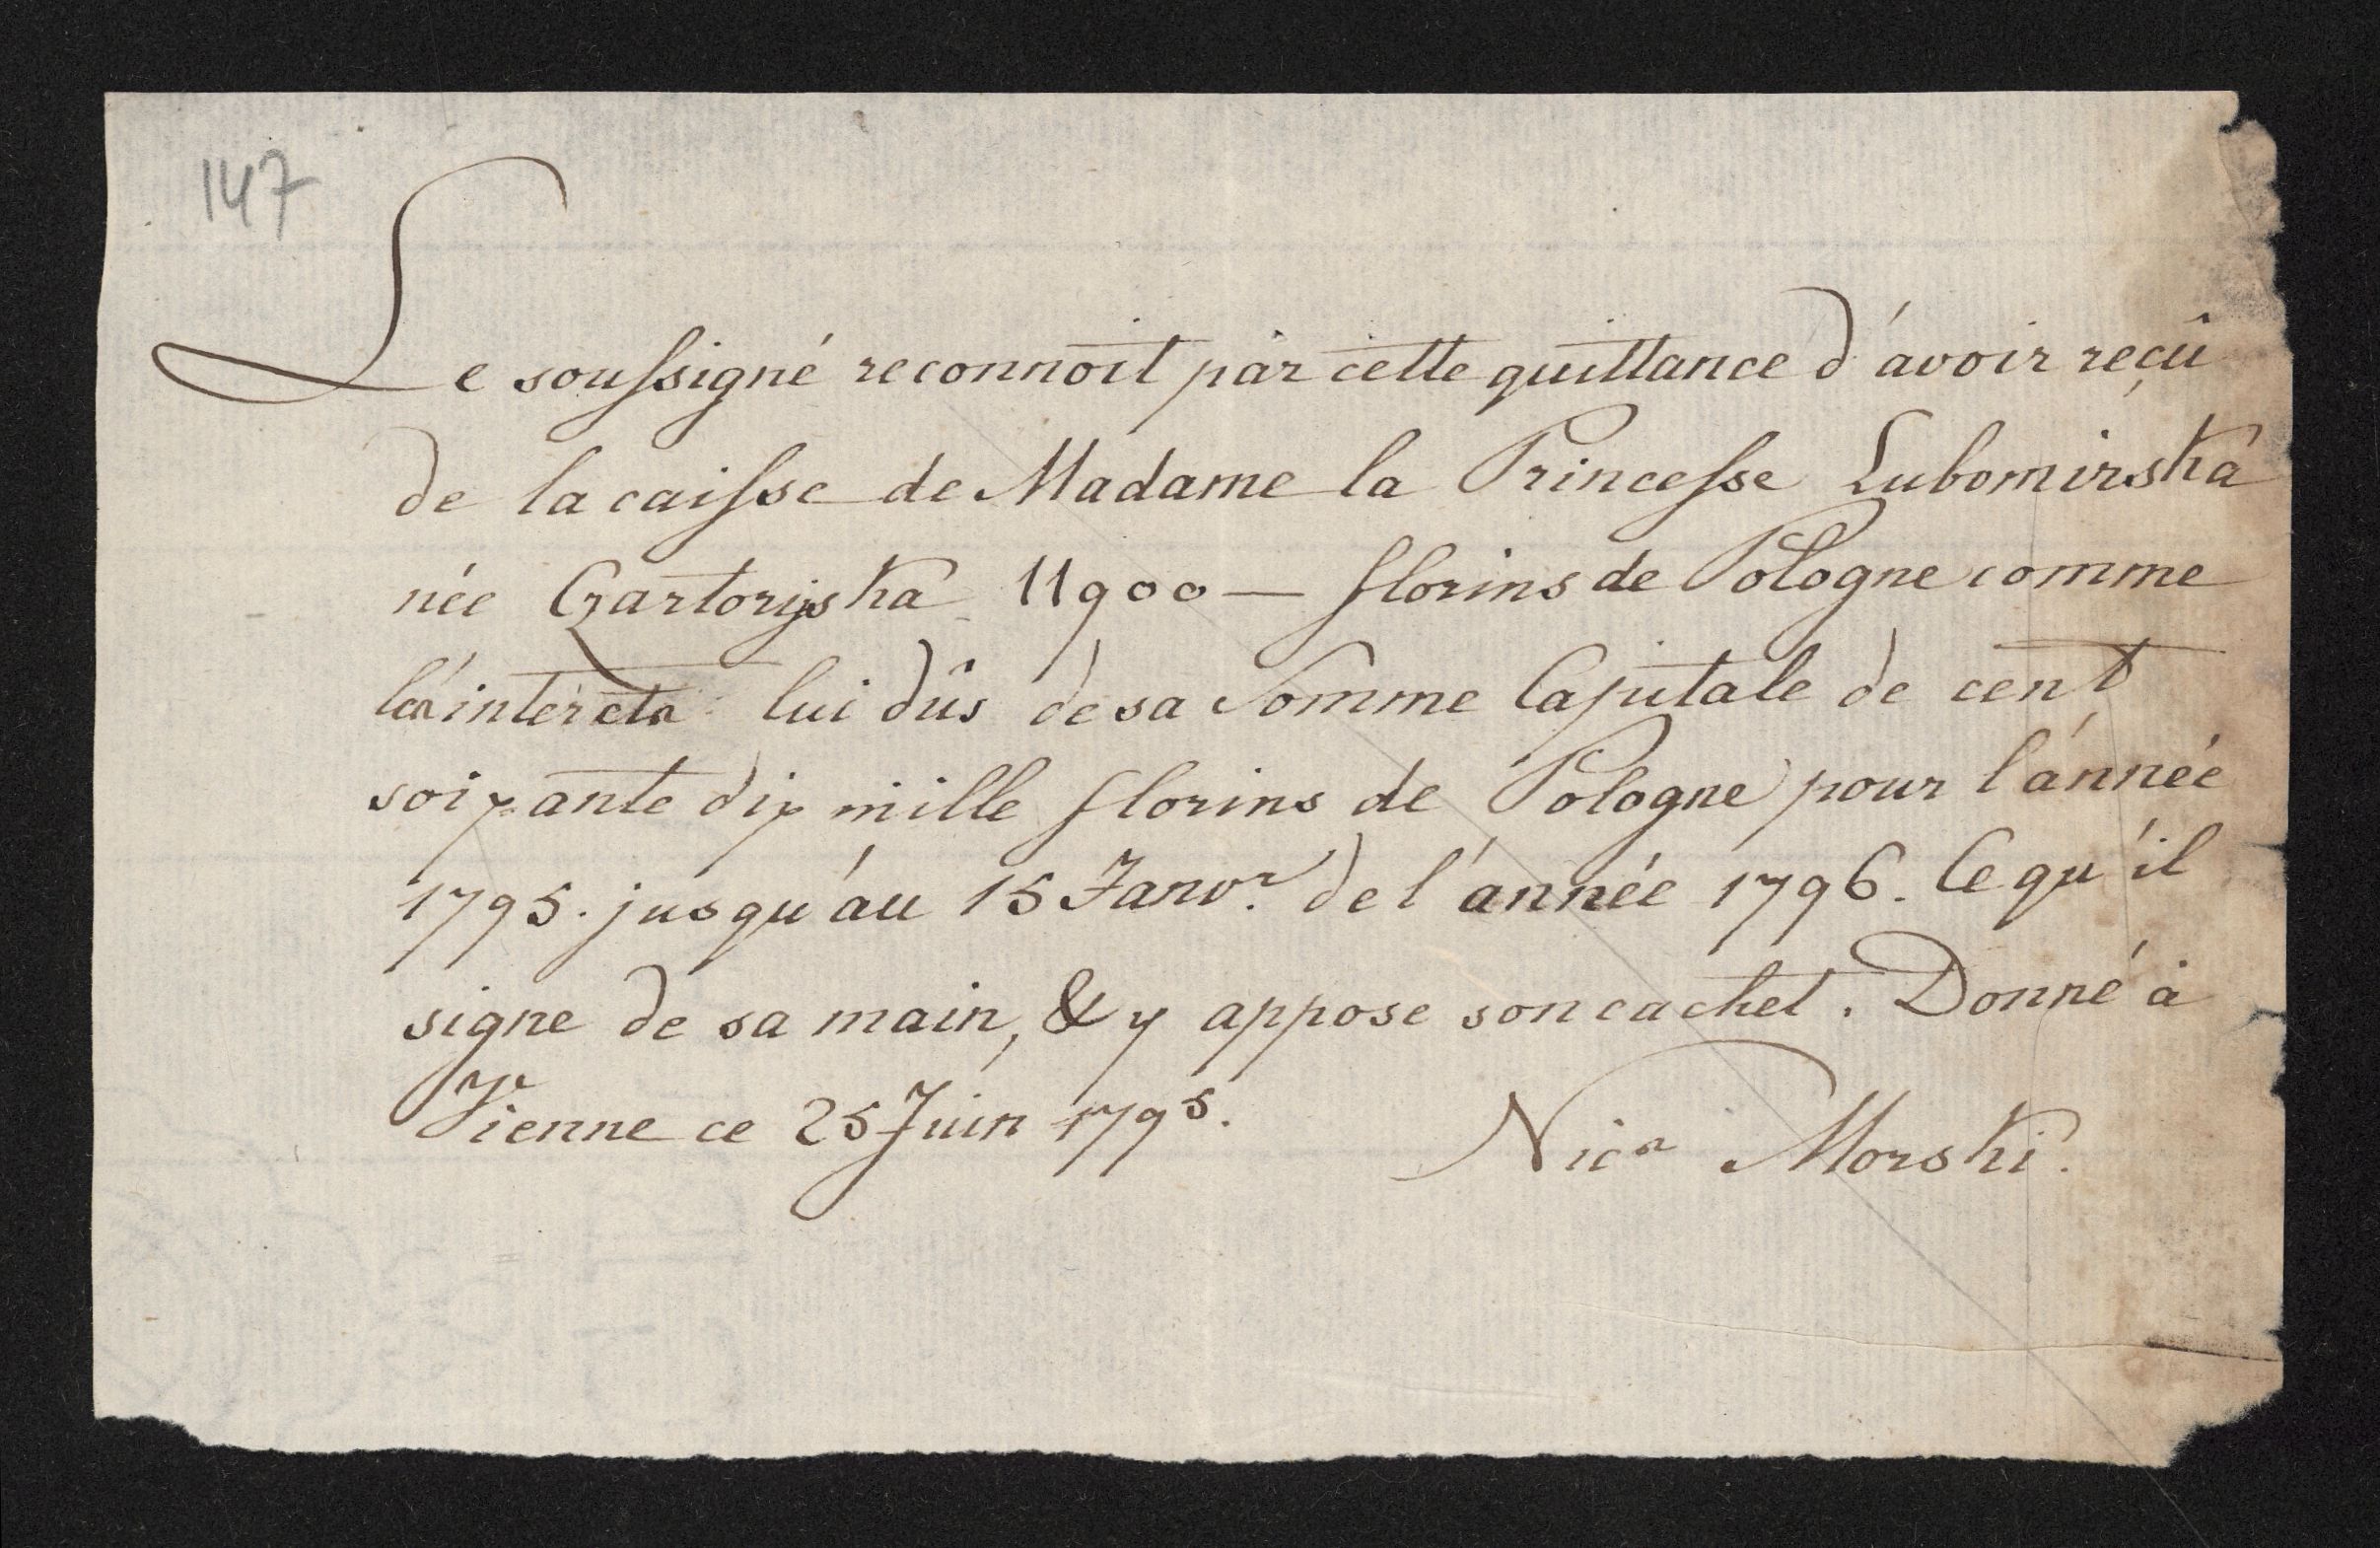 147
Le soussigné reconnoit par cette quittance d'avoir reçû
de la caisse de Madame la Princesse Lubomirska
née Czartoryska 11900 — florins de Pologne comme
les interets lui dûs de sa Somme Capitale de cent
soixante dix mille florins de Pologne pour l'année
1795. jusqu'au 15 Janv.r de l'année 1796. Ce qu'il
signe de sa main, & y appose son cachet. Donné à
Vienne ce 25 Juin 1795.
Nics Morski.